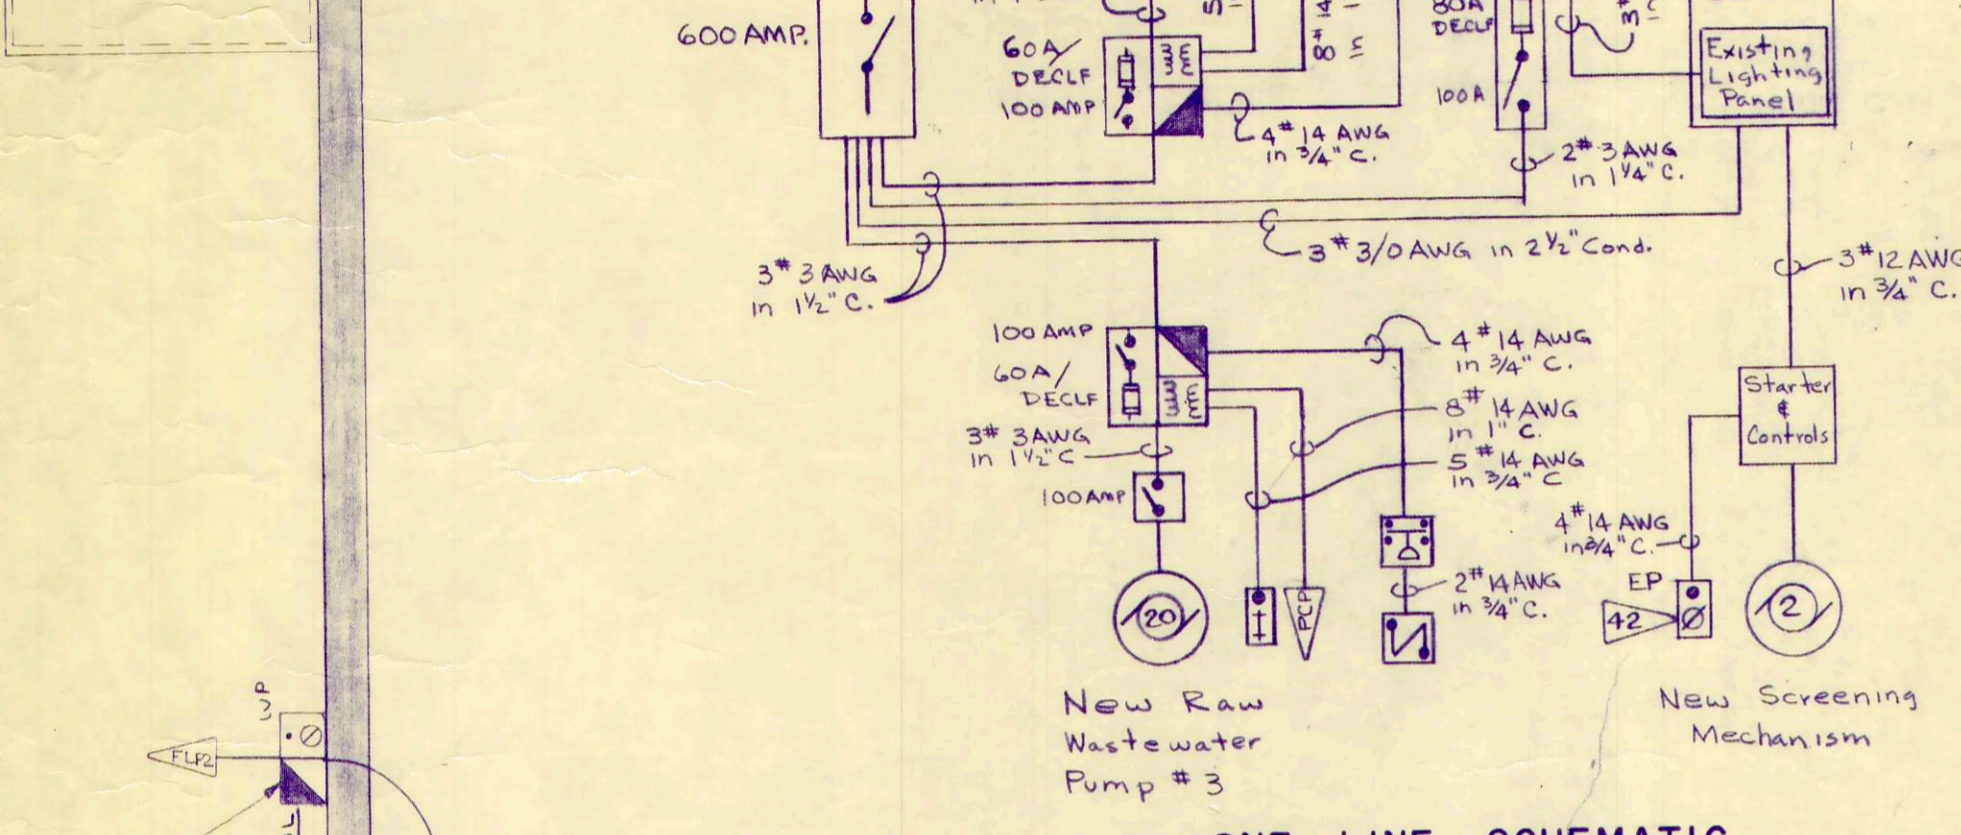 600 AMP.
60A/
DECLF
100 AMP
8#14
4#14 AWG
in 3/4" C.
80A
DECLF
100A
Existing
Lighting
Panel
2#3 AWG
in 1 1/4" C.
3#3/0 AWG in 2 1/2" Cond.
3#3 AWG
in 1 1/2" C.
3#12 AWG
in 3/4" C.
100 AMP
60A/
DECLF
4#14 AWG
in 3/4" C.
8#14 AWG
in 1" C.
5#14 AWG
in 3/4" C
3# 3AWG
in 1 1/2" C
100AMP
Starter
&
Controls
4#14 AWG
in 3/4" C.
2#14 AWG
in 3/4" C.
EP
42
20
PCP
2
New Raw
Wastewater
Pump # 3
New Screening
Mechanism
3P
FLP2
ONE LINE SCHEMATIC